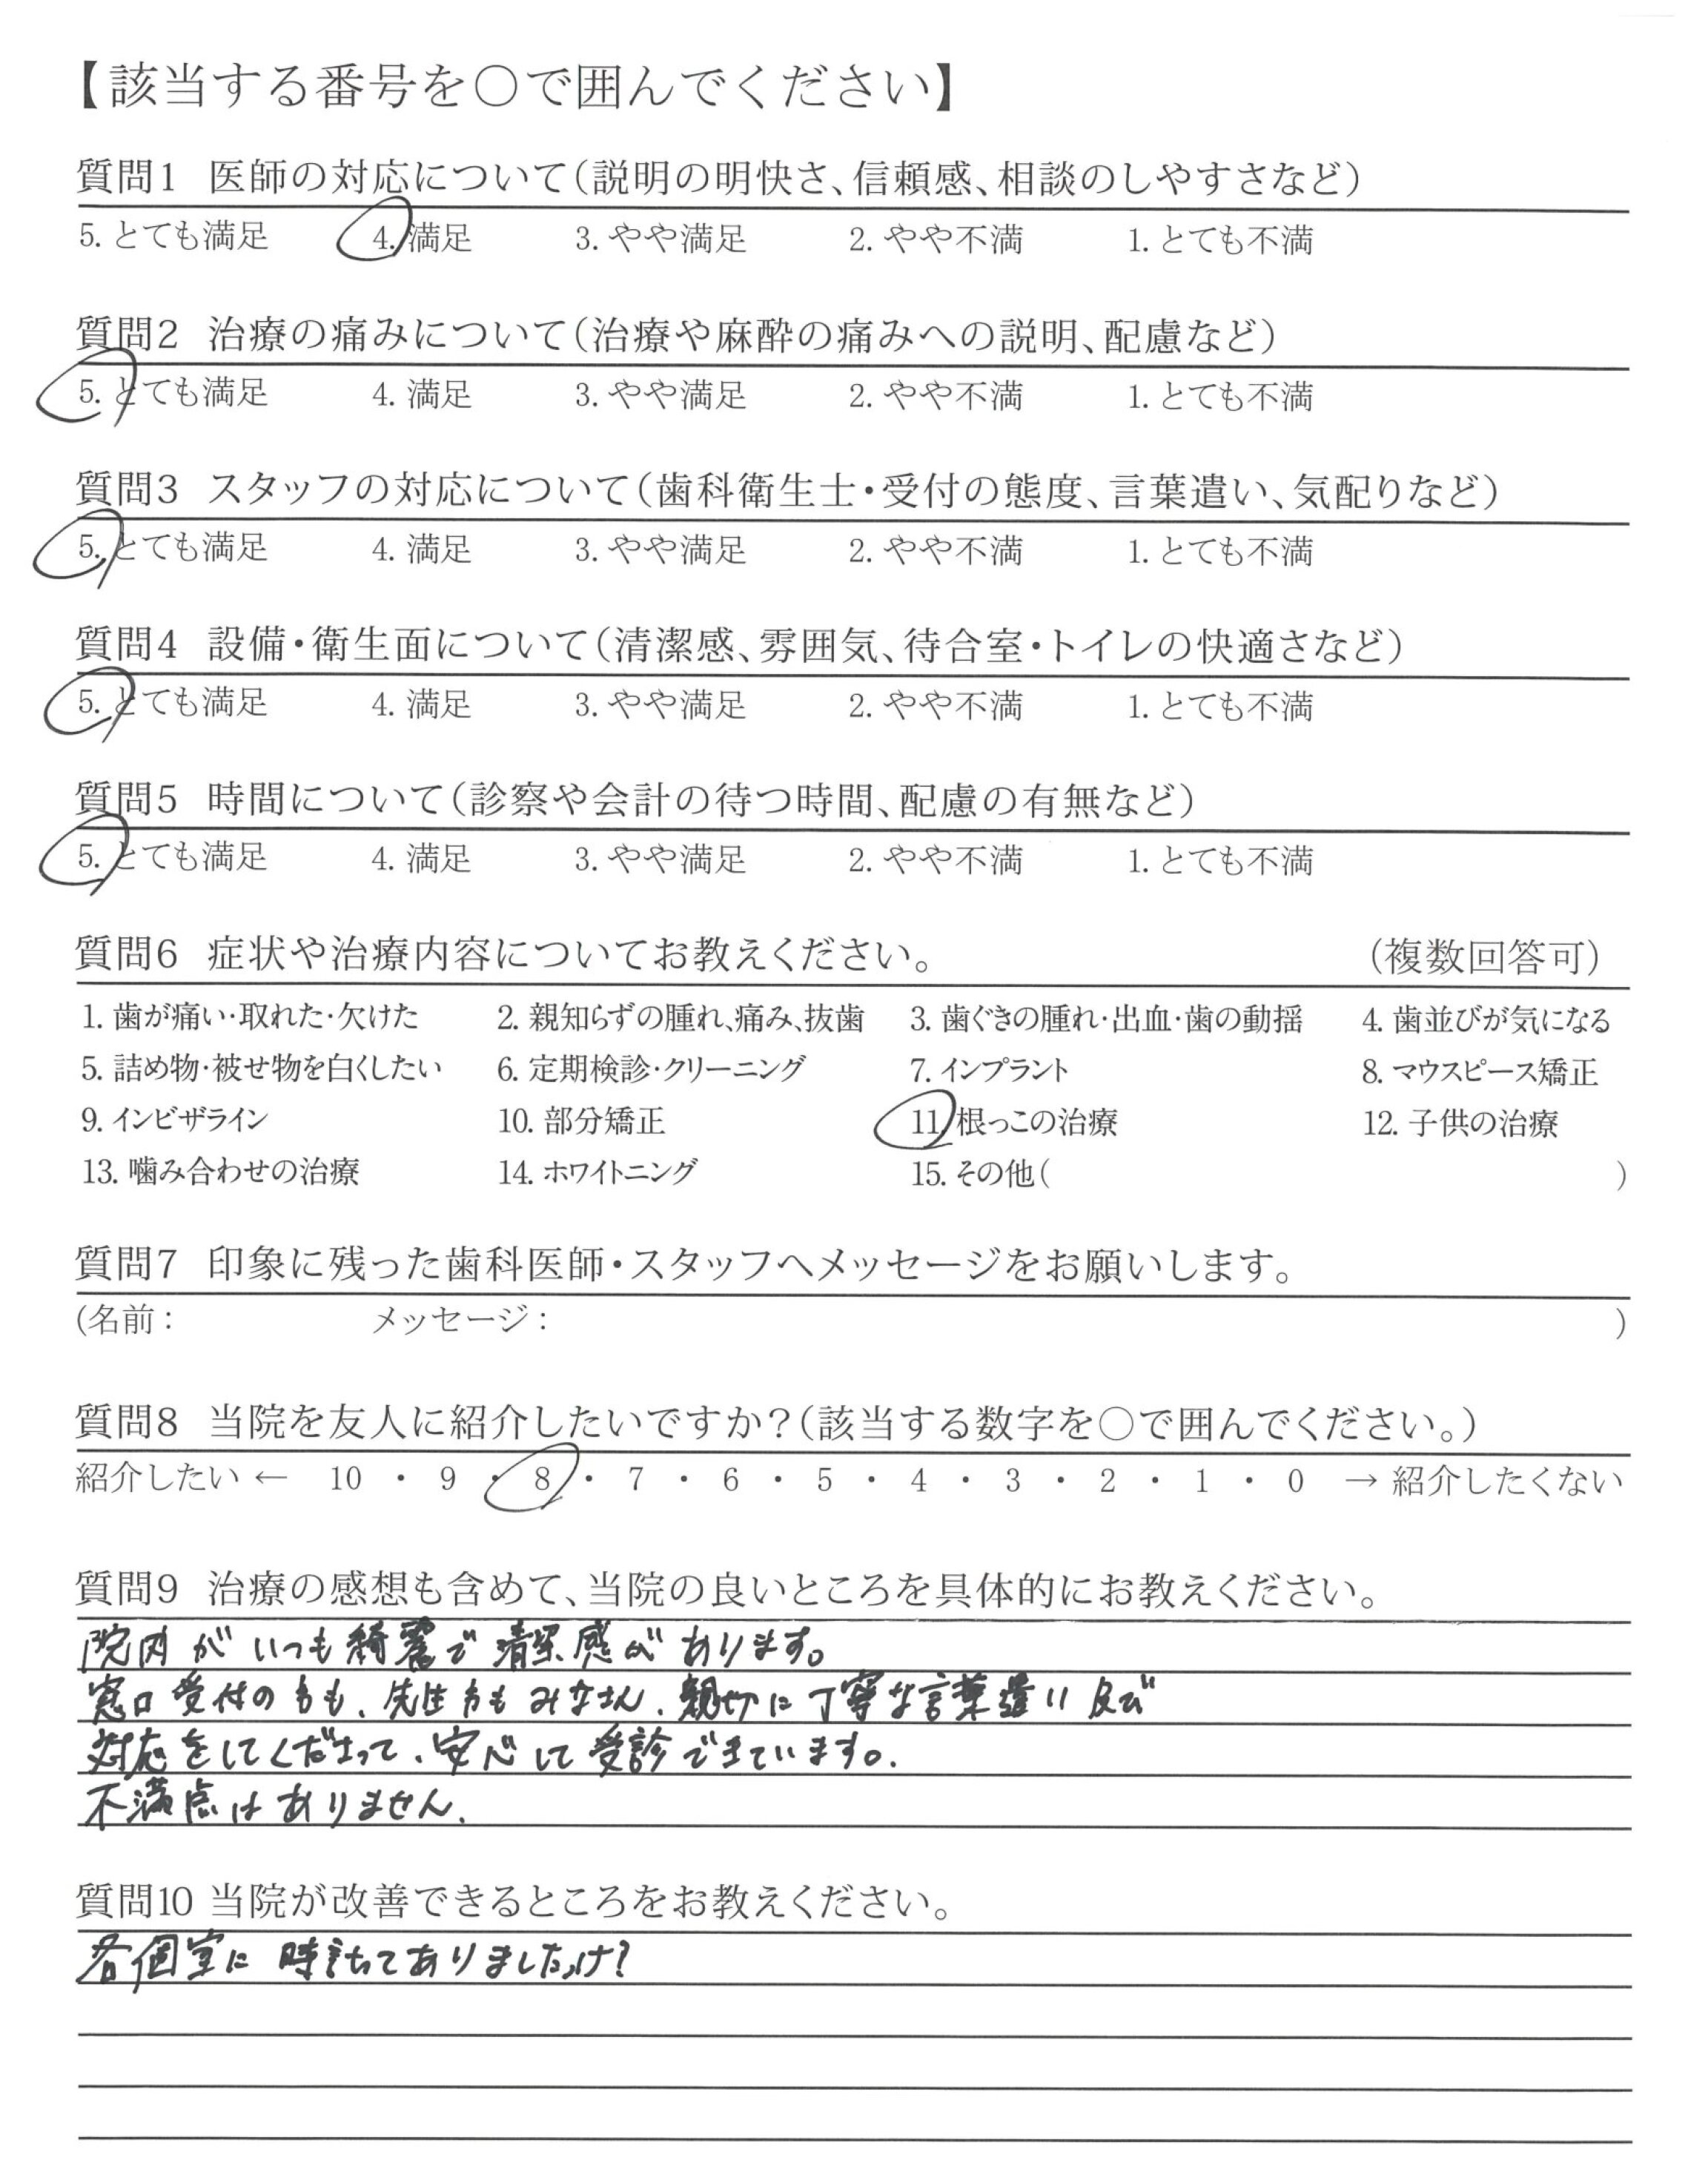 【該当する番号を○で囲んでください】
質問1 医師の対応について(説明の明快さ、信頼感、相談のしやすさなど)
5. とても満足 4. 満足 3. やや満足 2. やや不満 1. とても不満
質問2 治療の痛みについて(治療や麻酔の痛みへの説明、配慮など)
5. とても満足 4. 満足 3. やや満足 2. やや不満 1. とても不満
質問3 スタッフの対応について(歯科衛生士・受付の態度、言葉遣い、気配りなど)
5. とても満足 4. 満足 3. やや満足 2. やや不満 1. とても不満
質問4 設備・衛生面について(清潔感、雰囲気、待合室・トイレの快適さなど)
5. とても満足 4. 満足 3. やや満足 2. やや不満 1. とても不満
質問5 時間について(診察や会計の待つ時間、配慮の有無など)
5. とても満足 4. 満足 3. やや満足 2. やや不満 1. とても不満
質問6 症状や治療内容についてお教えください。 (複数回答可)
1. 歯が痛い・取れた・欠けた 2. 親知らずの腫れ、痛み、抜歯 3. 歯ぐきの腫れ・出血・歯の動揺 4. 歯並びが気になる
5. 詰め物・被せ物を白くしたい 6. 定期検診・クリーニング 7. インプラント 8. マウスピース矯正
9. インビザライン 10. 部分矯正 11. 根っこの治療 12. 子供の治療
13. 噛み合わせの治療 14. ホワイトニング 15. その他( )
質問7 印象に残った歯科医師・スタッフへメッセージをお願いします。
(名前: メッセージ: )
質問8 当院を友人に紹介したいですか?(該当する数字を○で囲んでください。)
紹介したい ← 10 ・ 9 ・ 8 ・ 7 ・ 6 ・ 5 ・ 4 ・ 3 ・ 2 ・ 1 ・ 0 → 紹介したくない
質問9 治療の感想も含めて、当院の良いところを具体的にお教えください。
院内がいつも綺麗で清潔感があります。
窓口受付の方も、先生方もみなさん、親切に丁寧な言葉遣い及び
対応をしてくださって、安心して受診できています。
不満点はありません。
質問10 当院が改善できるところをお教えください。
各個室に時計ってありましたっけ?